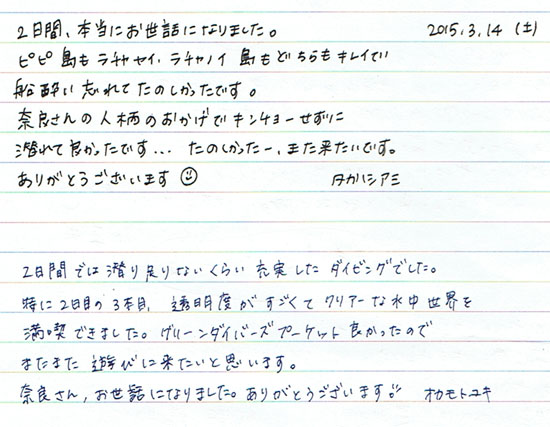 2日間、本当にお世話になりました。 2015.3.14 (土)
ピピ島もラチャヤイ、ラチャノイ島もどちらもキレイでい
船酔い忘れてたのしかったです。
奈良さんの人柄のおかげでキンチョーせずに
潜れて良かったです... たのしかったー、また来たいです。
ありがとうございます☺ タカハシアミ
2日間では潜り足りないくらい充実したダイビングでした。
特に2日目の3本目、透明度がすごくてクリアーな水中世界を
満喫できました。グリーンダイバーズプーケット良かったので
またまた遊びに来たいと思います。
奈良さん、お世話になりました。ありがとうございます オカモトユキ